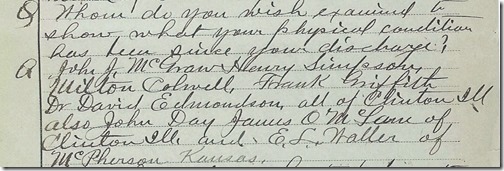 Q Whom do you wish examined to
show, what your physical condition
has been since your discharge?
A John J. McGraw Henry Simpson,
Milton Colwell, Frank Griffith
Dr David Edmondson, all of Clinton Ill
also John Day James O. McLane of
Clinton Ill. and E. L. Waller of
McPherson Kansas.